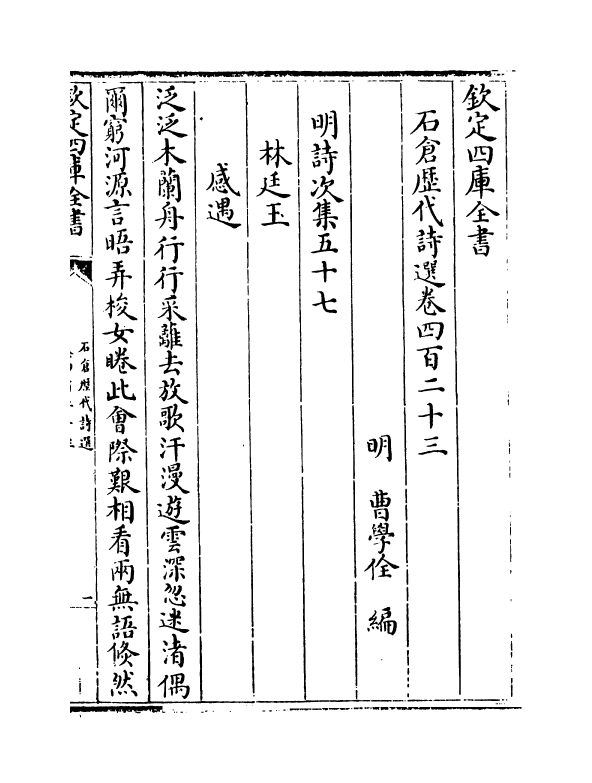 欽定四庫全書
石倉歴代詩選卷四百二十三
明　曹學佺　編
明詩次集五十七
林廷玉
感遇
泛泛木蘭舟行行采蘺去放歌汗漫遊雲深忽迷渚偶
爾窮河源言晤弄梭女睠此會際艱相看兩無語倐然
欽定四庫全書
石倉歴代詩選
一